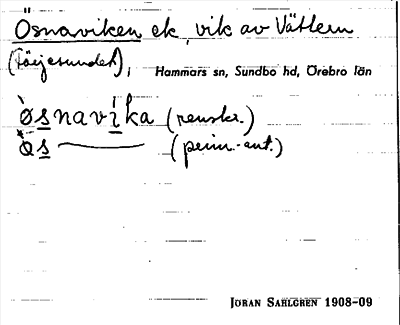 Ösnaviken ek, vik av Vättern
(Färjesundet),
Hammars sn, Sundbo hd, Örebro län
ø̀snavìka (renskr.)
ø̀s (prim.-ant.)
JÖRAN SAHLGREN 1908-09